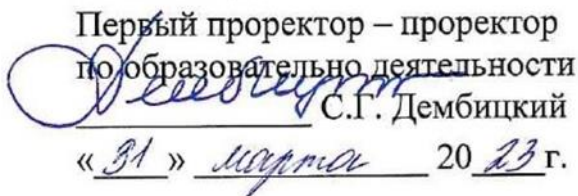 Первый проректор – проректор
по образовательно деятельности
С.Г. Дембицкий
«31» марта 2023г.